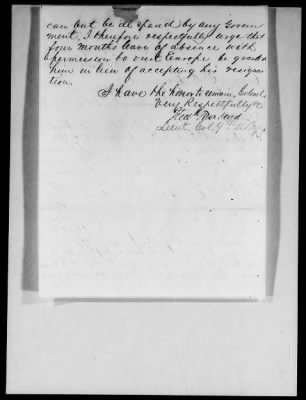 can but be ill spared by any Govern
ment, I therefore respectfully urge that
four months leave of absence with
permission to visit Europe be granted
him in lieu of accepting his resigna
tion.
I have the honor to remain, Colonel,
Very Respectfully &c
Lieut. Col